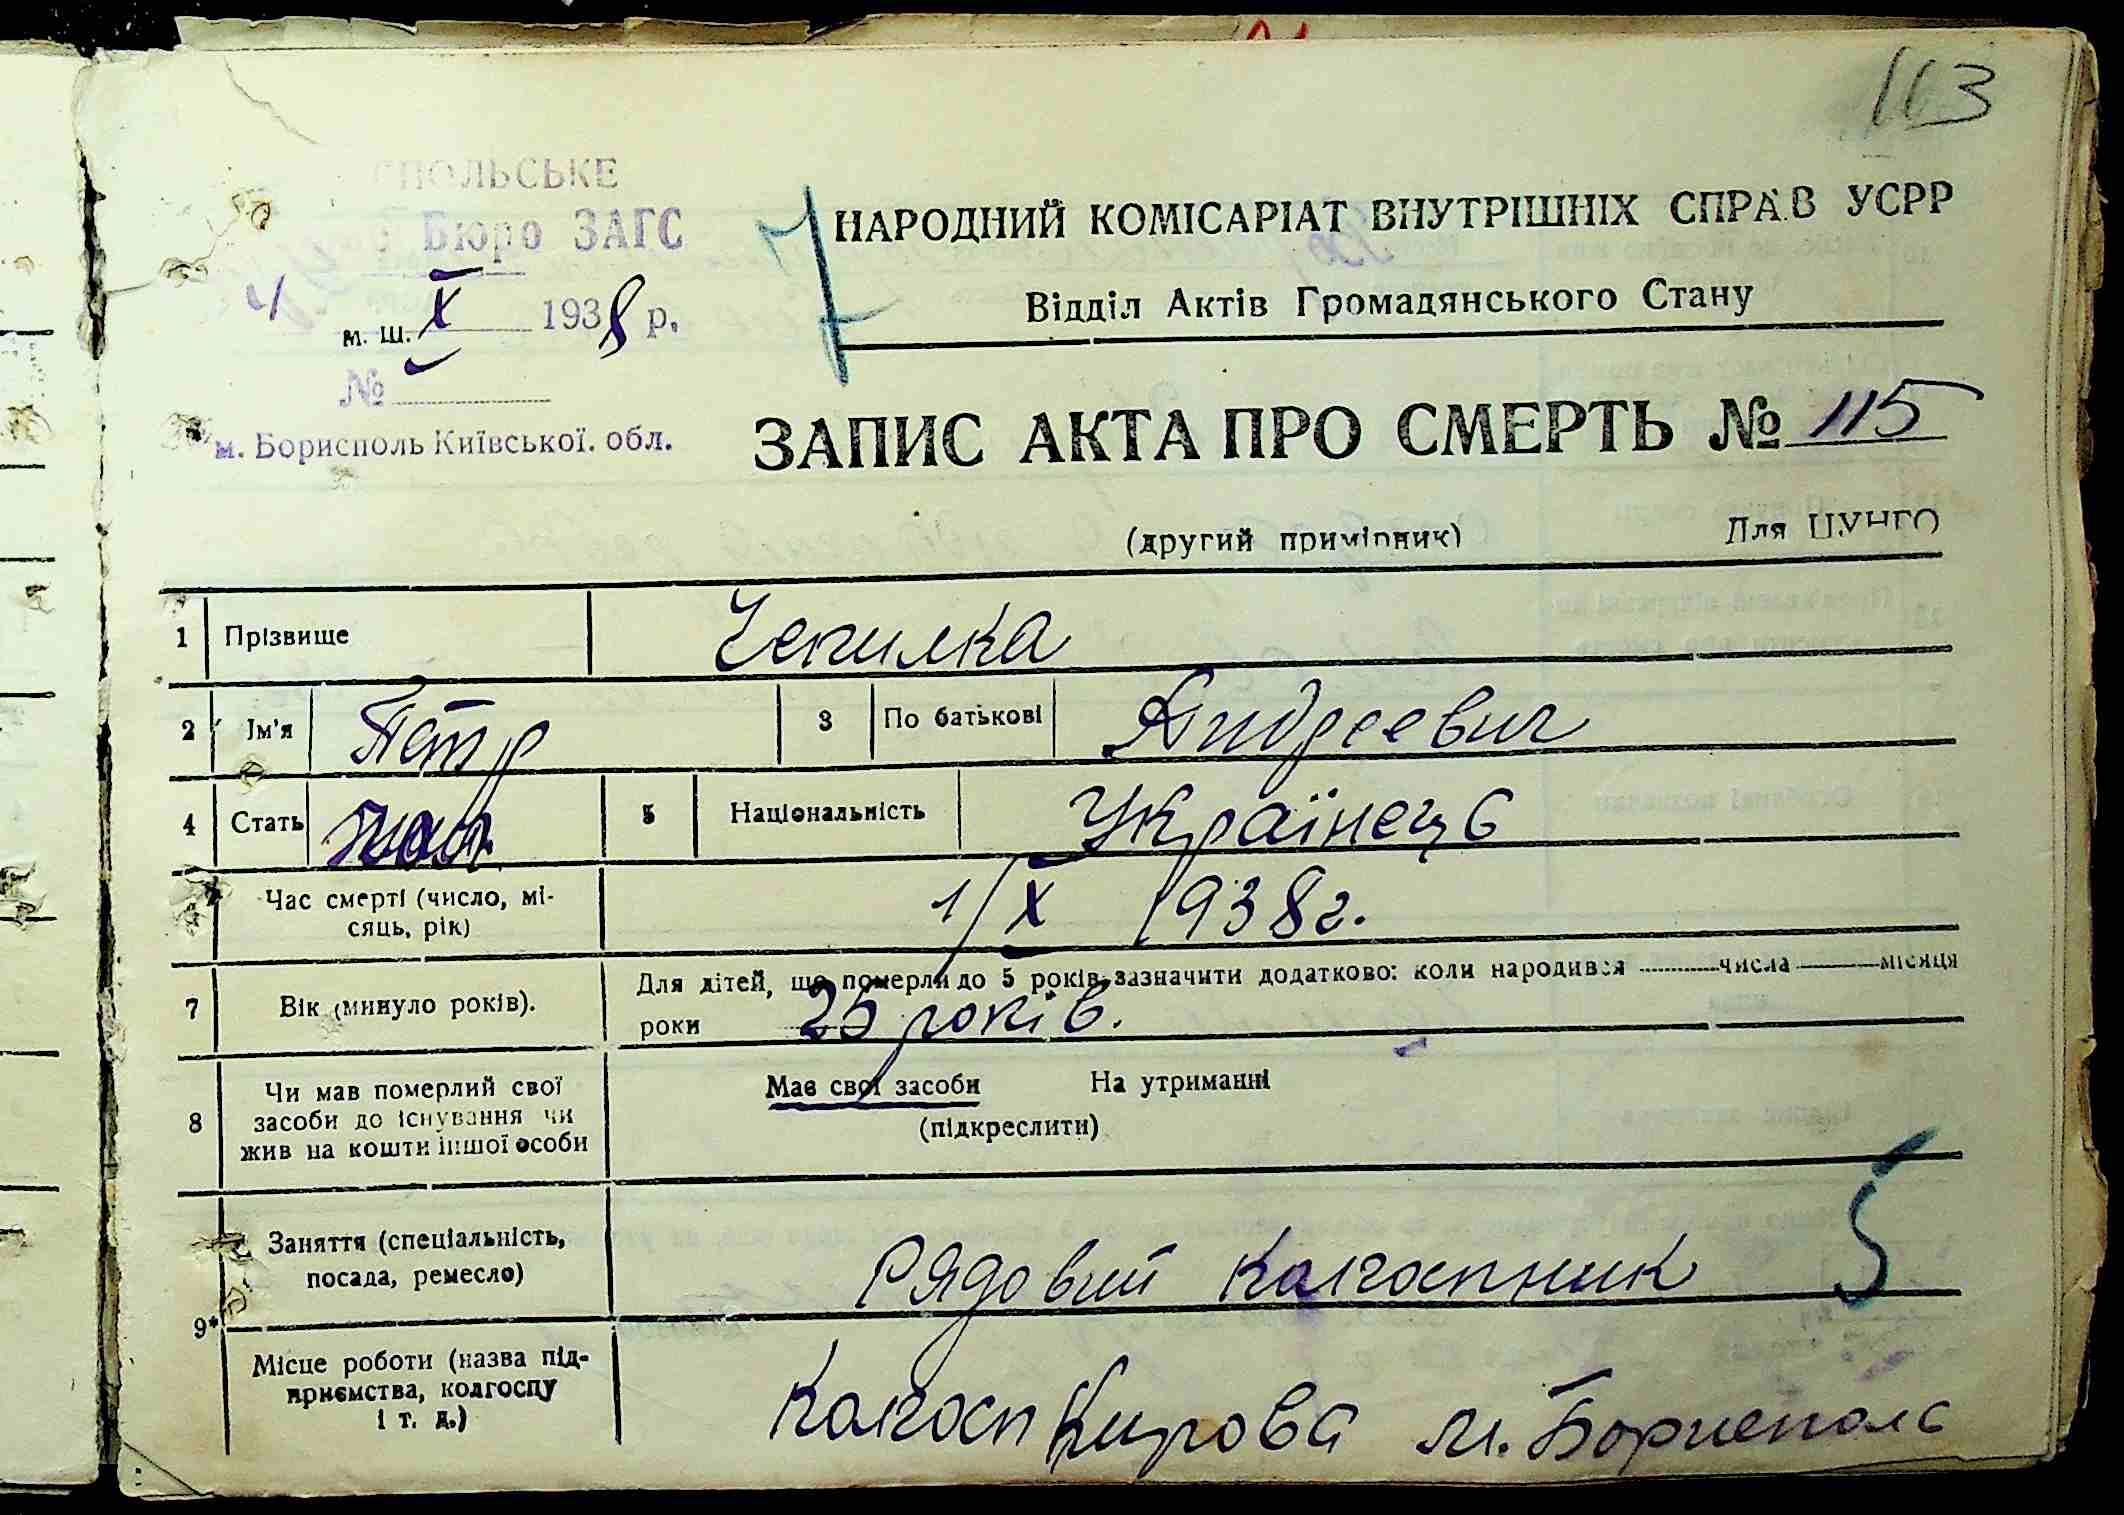 113
СПОЛЬСЬКЕ
Бюро ЗАГС
4 м. ш. X 1938 р.
№
м. Борисполь Київської. обл.
7
НАРОДНИЙ КОМІСАРІАТ ВНУТРІШНІХ СПРАВ УСРР
Відділ Актів Громадянського Стану
ЗАПИС АКТА ПРО СМЕРТЬ № 115
(другий примірник) Для ЦУНГО
1 Прізвище Чепилка
2 Ім'я Петр 3 По батькові Андреевич
4 Стать 5 Національність Українець
Час смерті (число, мі-
сяць, рік) 1/X 1938г.
7 Вік (минуло років). Для дітей, що померли до 5 років зазначити додатково: коли народився числа місяця
роки 25 років.
8 Чи мав померлий свої
засоби до існування чи
жив на кошти іншої особи
Має свої засоби На утриманні
(підкреслити)
9* Заняття (спеціальність,
посада, ремесло) Рядовий колгоспник 5
Місце роботи (назва під-
приємства, колгоспу
і т. д.) Колгосп Кирова м. Борисполь